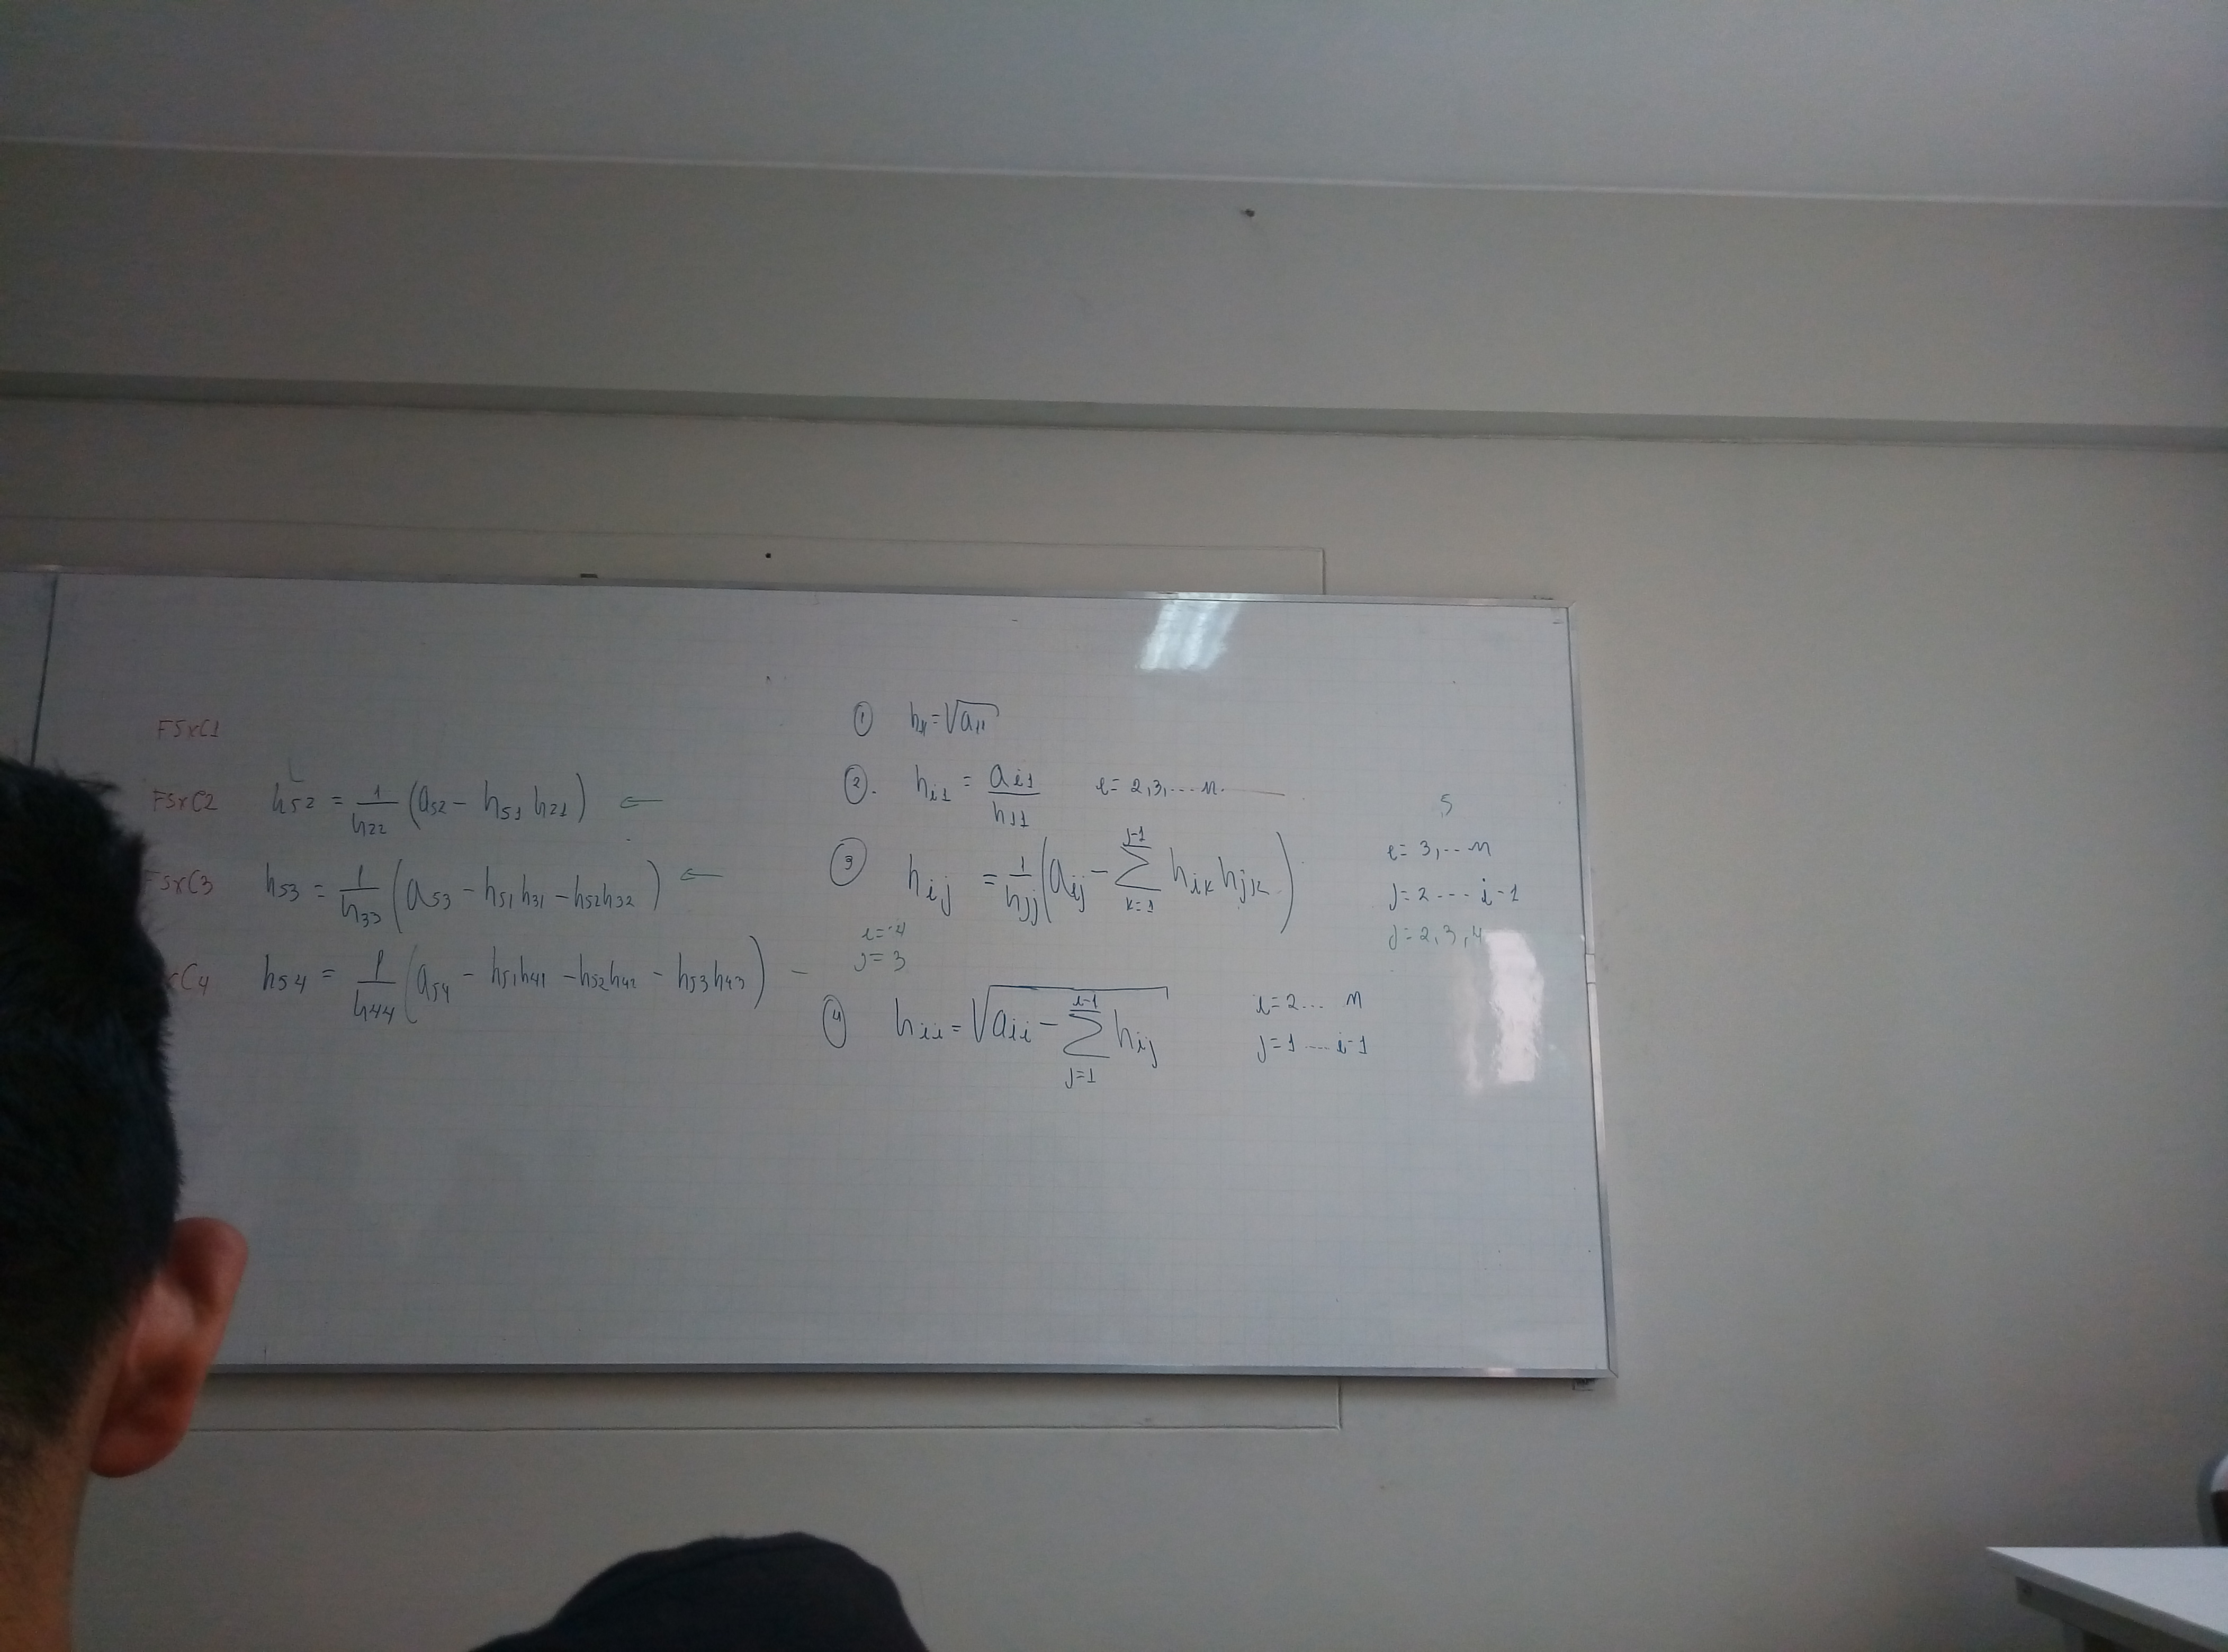 F5xC1
F5xC2 h52 = 1/h22 (a52 - h51 h21) ←
F5xC3 h53 = 1/h33 (a53 - h51h31 - h52h32) ←
xC4 h54 = 1/h44 (a54 - h51h41 - h52h42 - h53h43) -
① h11 = √a11
②. hi1 = ai1/h11 i = 2,3,....n.
5
③ hij = 1/hjj (aij - Σ_{k=1}^{j-1} hik hjk) i = 3,...n
j = 2 .... i-1
i = 4 j = 2,3,4
j = 3
④ hii = √(aii - Σ_{j=1}^{i-1} hij) i = 2... n
j = 1 .... i-1